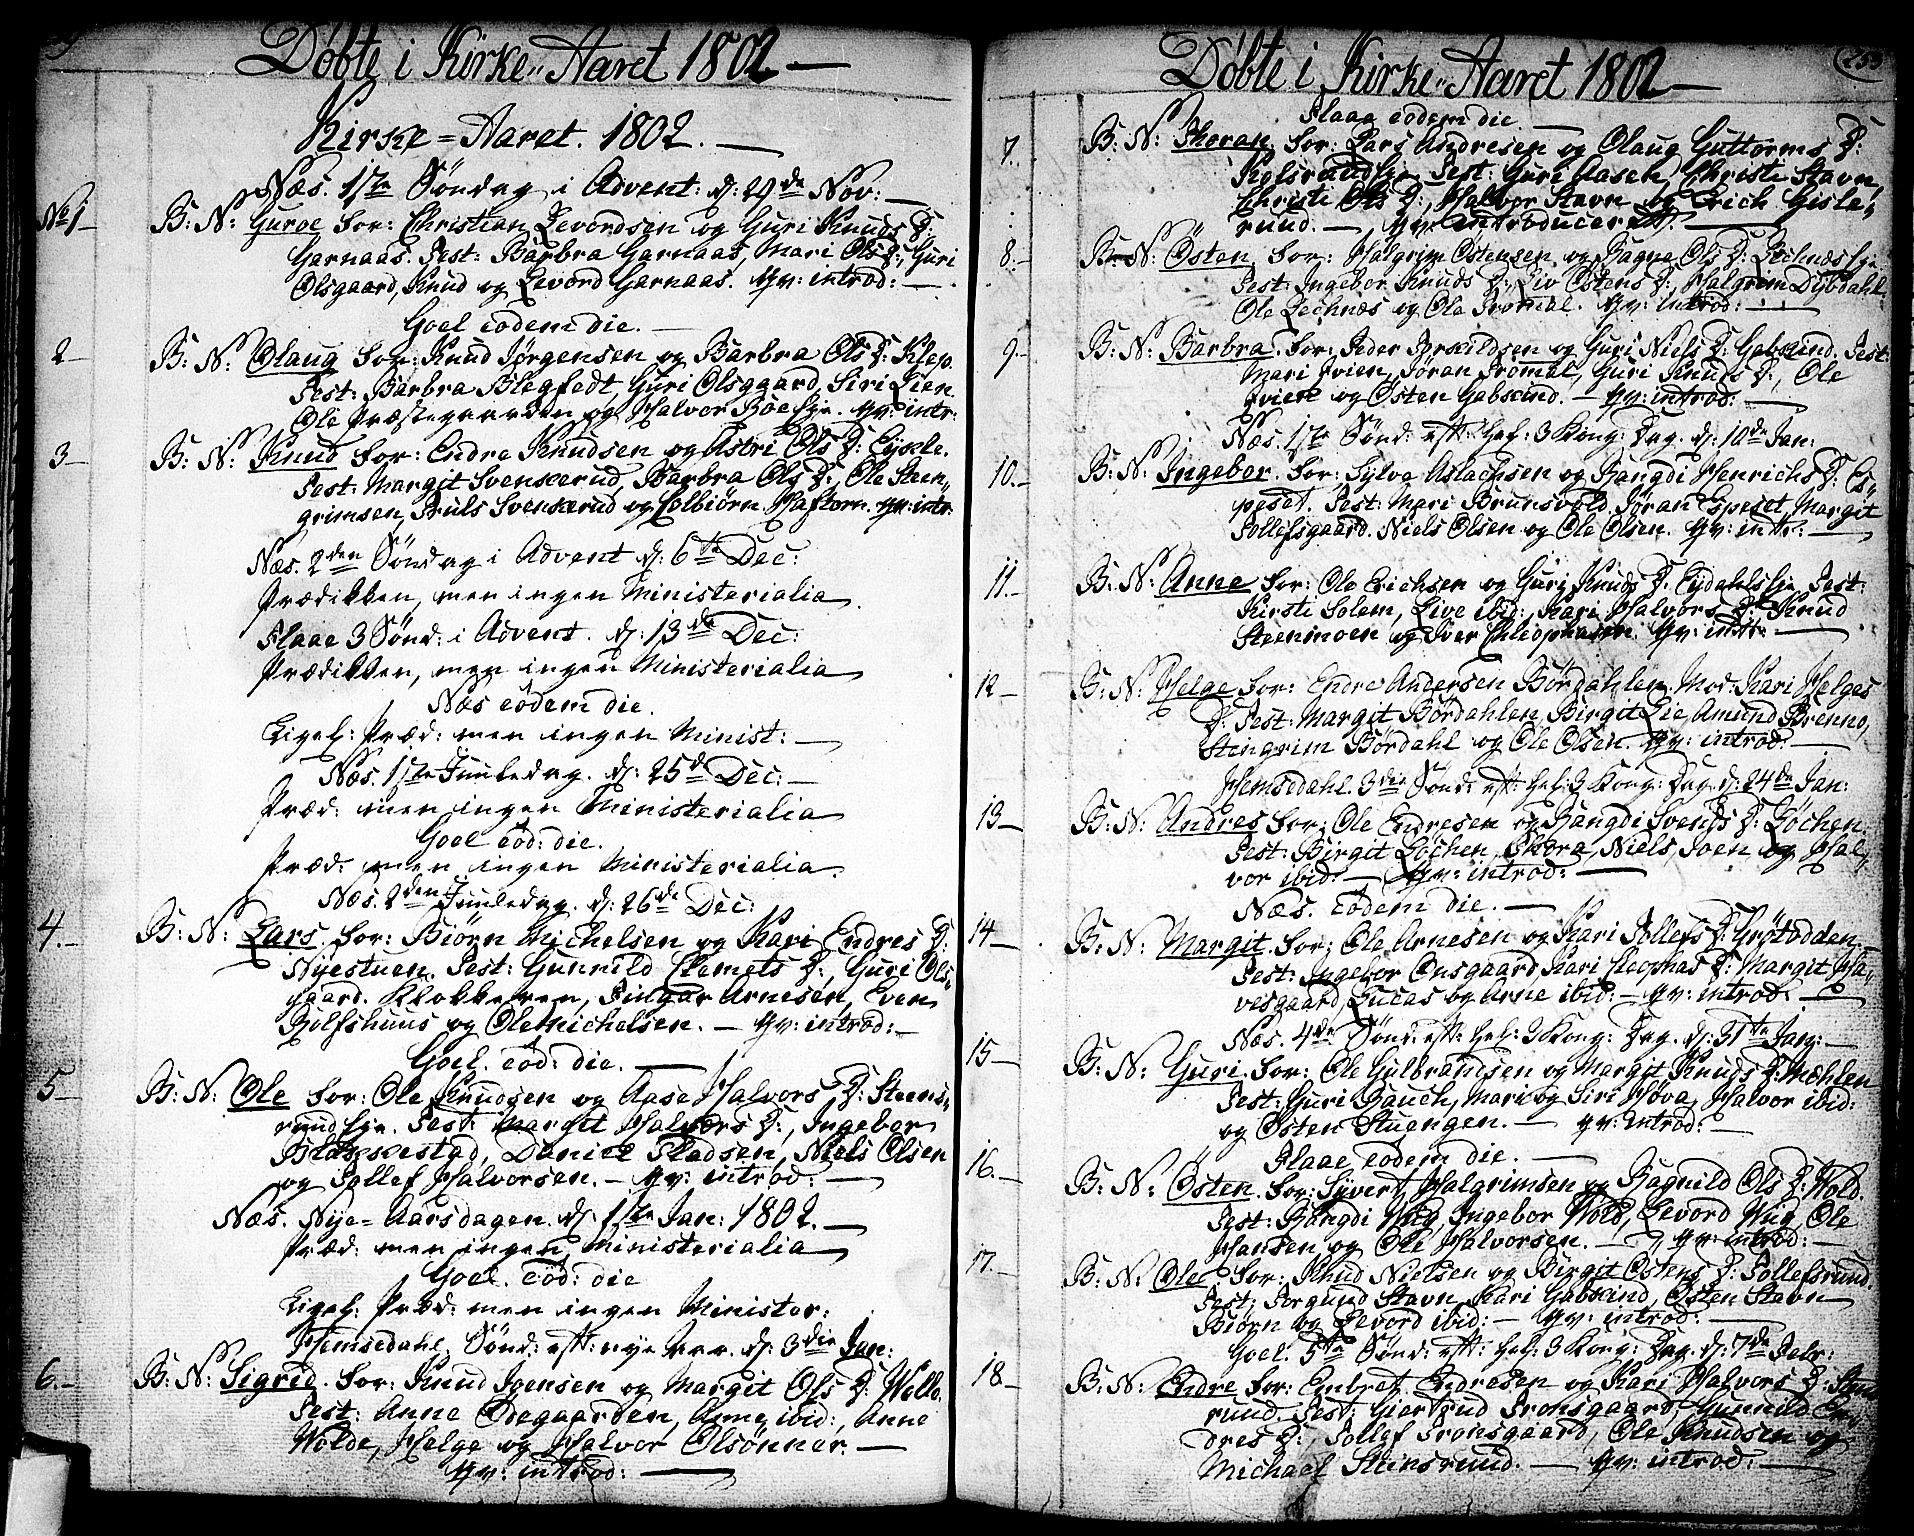 Døbte i Kirke-Aaret 1802
Kirke-Aaret. 1802.
Næs. 1ste Söndag i Advent: d: 29de Nov:
No 1 B: N: Guroe for: Christian Levordsen og Guri Knuds D:
Garnaas. Test: Barbra Garnaas, Mari Ols D:, Guri
Olsgaard, Knud og Levord Garnaas. Hv: introd:
Goel eodem die.
2 B: N: Olaug for: Knud Jørgensen og Barbra Ols D: Klep.
Test: Barbra Blegfedt, Guri Olsgaard, Siri Lien
Ole Præstegaarden og Halvor Böe Eje. Hv: intr:
3 B: N: Knud for: Endre Knudsen og Astri Ols D:
Test: Margit Svenkerud, Barbra Ols D:, Ole Steen-
grimsen, Truls Svenkerud og Colbiørn Haftorn. Hv: intr:
Næs. 2den Söndag i Advent d: 6te Dec:
Prædikken, men ingen Ministerialia.
Flaae 3 Sönd: i Advent. d: 13de Dec:
Prædikken, men ingen Ministerialia
Næs eodem die.
Ligel: Præd: men ingen Minist:
Næs. 1ste Juuledag. d: 25de Dec:
Præd: men ingen Ministerialia
Goel eod: die.
Præd: men ingen Ministerialia.
Næs. 2den Juuledag. d: 26de Dec:
4. B: N: Lars. for: Biørn Michelsen og Kari Endres D:
Nyestuen. Test: Gunnild Clemets D:, Guri Ols-
gaard. Klokkeren, Fingar Arnesen, Even
Rolfshuus og Ole Michelsen. Hv: introd:
Goel. eod: die.
5 B: N: Ole for: Ole Knudsen og Aase Halvors D: Steens-
rud Eje. Test: Margit Halvors D:, Ingebor
Blakkestad, Daniel Sladsen, Niels Olsen
og Tollef Halvorsen. Hv: introd:
Næs. Nye-Aarsdagen. d: 1ste Jan: 1802.
Præd: men ingen Ministerialia
Goel. eod: die
Ligel: Præd: men ingen Minister:
Hemsedahl. Sönd: eft: nye Aar. d: 3die Jan:
6. B: N: Sigrid. for: Knud Joensen og Margit Ols D: Wolle.
Test: Anne Ødegaarden, Anne ibid:, Anne
Wolde, Helge og Halvor Olsönner.
Hv: introd:
Døbte i Kirke-Aaret 1802
253
Flaae eodem die
7. B: N: Thoran. for: Lars Andresen og Olaug Guttorms D:
Test: Guri Aasen, Christi Stavn,
Christi Ols D:, Halvor Stavn og Erich Gisle-
rud. Hv: introduceret.
8. B: N: Östen. for: Halgrim Östensen og Ragne Ols D: Lechnæs Eje
Test: Ingebor Knuds D:, Liv Östens D:, Halgrim Dybdahl
Ole Lechnæs og Ole Tromal. Hv: introd:
9. B: N: Barbra. for: Peder Torkildsen og Guri Niels D: Gabskind. Test:
Mari Hvien, Joran Trömal, Guri Knuds D:, Ole
Hvien og Östen Gabskind. Hv: introd:
Næs. 1ste Sönd: eft: Hel: 3 Kong: Dag. d: 10de Jan:
10. B: N: Ingebor. for: Sylve Aslachsen og Rangdi Henrichs D: Es-
peset. Test: Mari Brunsvold, Jøran Espeset, Margit
Tollefsgaard. Niels Olsen og Ole Olsen. Hv: intr:
11. B: N: Anne for: Ole Erichsen og Guri Knuds D: Eydahls Eje Test:
Kirsti Solem, Live ibid:, Kari Halvors D:, Knud
Steenmoen og Iver Chleophasen. Hv: intr:
12 B: N: Helge for: Endre Andersen Bördahlen. Mod: Kari Helges
D: Test: Margit Bördahlen, Birgit Lie, Amund Brenno,
Stengrim Bördahl og Ole Olsen. Hv: introd:
Hemsedahl. 3die Sönd: eft: Hel: 3 Kong: Dag. d: 24de Jan:
13 B: N: Andres for: Ole Endresen og Rangdi Svends D: Löchen.
Test: Birgit Löchen, Thora, Niels, Joen og Hal-
vor ibid: Hv: introd:
Næs. eodem die.
14 B: N: Margit. for: Ole Arnesen og Kari Tollefs D: Grötodden
Test: Ingebor Onsgaard, Kari Cleophas D: Margit Ha-
vesgaard, Lucas og Arne ibid: Hv: introd:
Næs. 4de Sönd: eft: Hel: 3 Kong: Dag. d: 31te Jan:
15 B: N: Guri. for: Ole Gulbrandsen og Margit Knuds D: Mæhlen
Test: Guri Rauch, Mari og Siri Höva, Halvor ibid:
og Östen Stuengen. Hv: introd:
Flaae eodem die.
16. B: N: Östen. for: Syvert Halgrimsen og Ragnild Ols D: Wold.
Test: Rangdi Wiig, Ingebor Wold, Levord Wiig, Ole
Hansen og Ole Halvorsen. Hv: introd:
17. B: N: Ole. for: Knud Nielsen og Birgit Östens D: Tollefsrud.
Test: Torgund Stavn, Kari Gabskind, Östen Stavn
Biörn og Levord ibid: Hv: introd:
Goel. 5te Sönd: eft: Hel: 3 Kong: Dag. d: 7de Febr:
18 B: N: Endre for: Embret Endresen og Kari Halvors D:
rund. Test: Giertrud Tronsgaard, Gunnild En-
dres D:, Tollef Tronsgaard, Ole Knudsen og
Michael Stinsrund. Hv: introd: